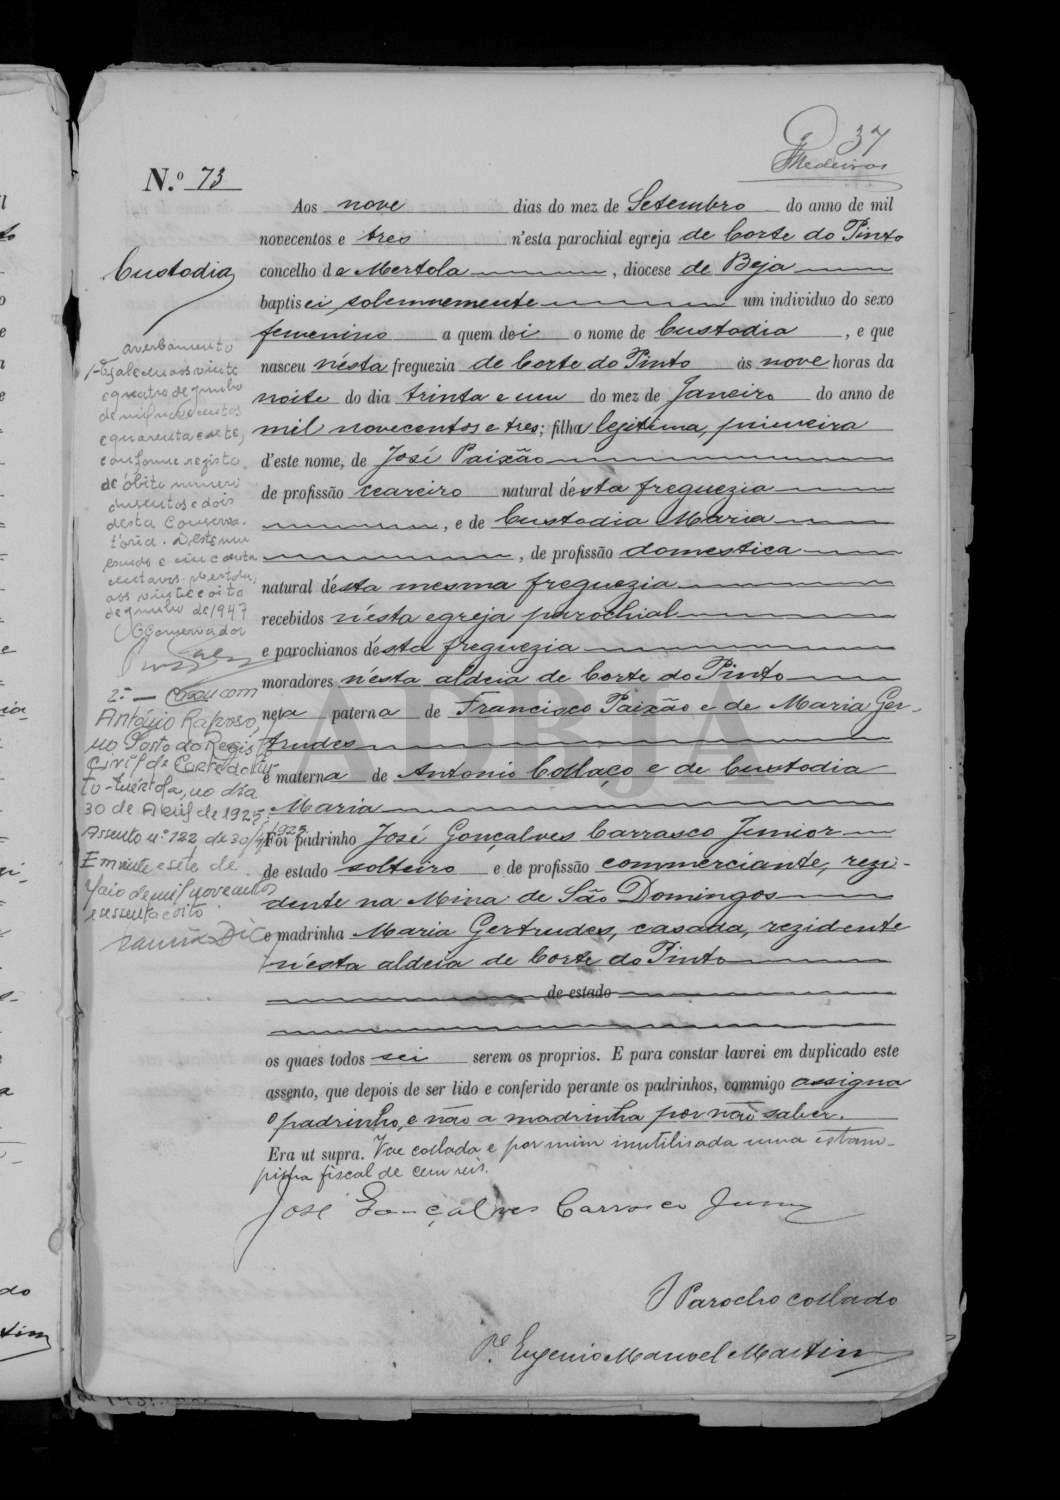 37
Medeiros
N.º 73
Custodia
Aos nove dias do mez de Setembro do anno de mil
novecentos e tres n'esta parochial egreja de Corte do Pinto
concelho de Mertola, diocese de Beja
baptisei solemnemente um individuo do sexo
femenino a quem dei o nome de Custodia, e que
nasceu n'ésta freguezia de Corte do Pinto ás nove horas da
noite do dia trinta e um do mez de Janeiro do anno de
mil novecentos e tres; filha legitima, primeira
d'este nome, de José Paixão
de profissão ceareiro natural désta freguezia
, e de Custodia Maria
, de profissão domestica
natural désta mesma freguezia
recebidos n'ésta egreja parochial
e parochianos désta freguezia
moradores n'ésta aldeia de Corte do Pinto
neta paterna de Francisco Paixão e de Maria Ger-
trudes
e materna de Antonio Collaço e de Custodia
Maria
Foi padrinho José Gonçalves Carrasco Junior
de estado solteiro e de profissão commerciante, rezi-
dente na Mina de São Domingos
e madrinha Maria Gertrudes, casada, rezidente
n'ésta aldeia de Corte do Pinto
de estado
os quaes todos sei serem os proprios. E para constar lavrei em duplicado este
assento, que depois de ser lido e conferido perante os padrinhos, commigo assigna
o padrinho, e não a madrinha por não saber.
Era ut supra. Vae collada e por mim inutilisada uma estam-
pilha fiscal de cem reis.
José Gonçalves Carrasco Junior
O Parocho collado
P.e Eugenio Manoel Martins
averbamento
1º Faleceu aos vinte
e quatro de junho
de mil novecentos
e quarenta e sete,
conforme registo
de óbito numero
duzentos e dois
desta Conserva-
tória. Desta um
escudo e cincoenta
centavos. Mertola,
aos vinte e oito
de junho de 1947
O Conservador
2º — Casou com
António Raposo,
no Posto do Registo
Civil de Corte do Pin-
to - Mértola, no dia
30 de Abril de 1925.
Assento n.º 122, de 30/4/1925
Em vinte e sete de
Maio de mil novecentos
e sessenta e oito
ADBJA